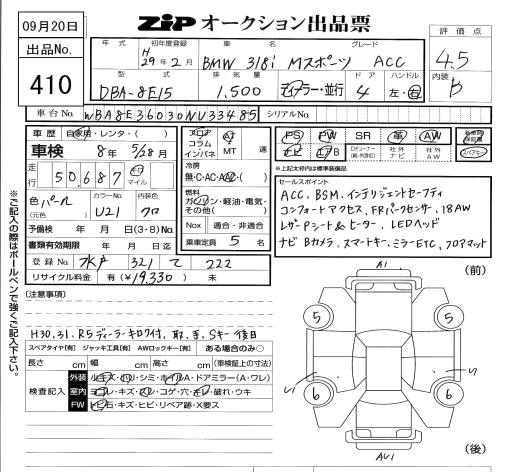 09月20日
ZIP オークション出品票
出品No.
410
評価点
4.5
内装
B
年式 初年度登録 車名 グレード
H 29年2月 BMW 318i Mスポーツ ACC
型式 排気量 ドア ハンドル
DBA-8E15 1,500 ディーラー・並行 4 左・右
車台No. WBA8E36030NU33485 シリアルNo.
車歴 自家用・レンタ・( )
車検 8年 5/28月
走行 50,687 km マイル
色 パール (元色) カラーNo. U21 内装色 クロ
予備検 年 月 日 (3・8) No.
書類有効期限 年 月 日迄
登録No. 水戸 321 て 222
リサイクル料金 有 (¥19,330) 未
フロア コラム インパネ AT MT 速
冷房
無・C・AC・AAC・( )
燃料
ガソリン・軽油・電気・その他( )
Nox 適合・非適合
乗車定員 5 名
PS PW SR 革 AW
ナビ エアB 社外ナビ 社外AW
スペアキー
*上記点わせは標準装備品
セールスポイント
ACC, BSM, インテリジェントセーフティ
コンフォートアクセス, FRパークセンサー, 18AW
レザーPシート&ヒーター, LEDヘッド
ナビ Bカメラ, スマートキー, ミラーETC, フロアマット
※ご記入の際はボールペンで強くご記入下さい。
(注意事項)
H30,31,R5ディーラーキロク付, 取, 手, Sキー後日
スペアタイヤ[有] ジャッキ工具[有] AWロックキー[有] ある場合のみ○
長さ cm 幅 cm 高さ cm (車検証上の寸法)
検査記入
外装 ルキズ・凹・シミ・ホイルA・ドアミラー(A・ワレ)
室内 ヨゴレ・キズ・スレ・コゲ・穴・キレ・破れ・ウキ
FW 飛石・キズ・ヒビ・リペア跡・X要ス
A1
(前)
5
5
6
6
AU1
(後)